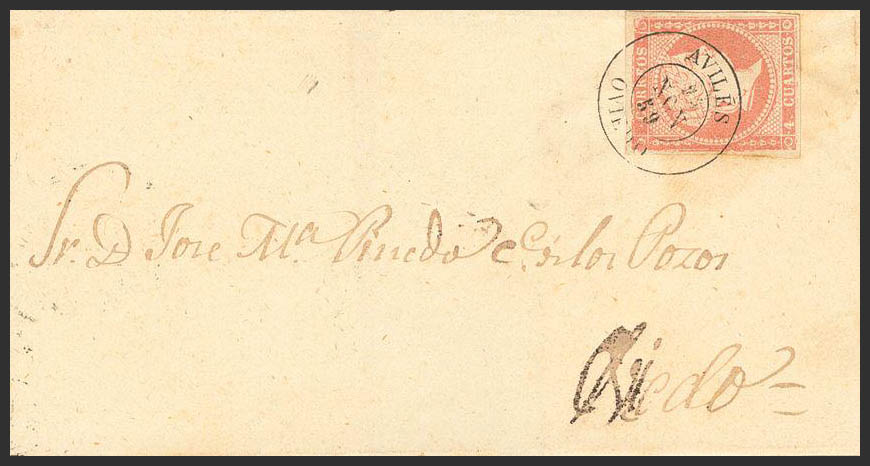 CORREOS
4 CUARTOS
AVILÉS
NOV
59
OVIEDO
Sr. D. Jose Mª Pinedo C. de los Pozos
Oviedo